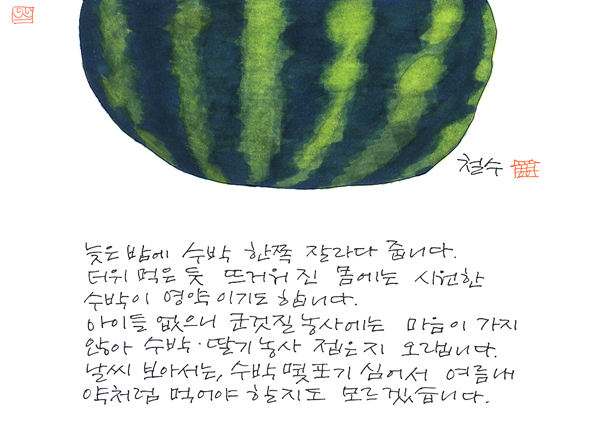 철수
늦은 밤에 수박 한쪽 잘라다 줍니다.
더위 먹은 듯 뜨거워진 몸에는 시원한
수박이 영약이기도 합니다.
아이들 없으니 군것질농사에는 마음이 가지
않아 수박·딸기농사 접은지 오랩니다.
날씨 보아서는, 수박 몇포기 심어서 여름내
약처럼 먹어야 할지도 모르겠습니다.